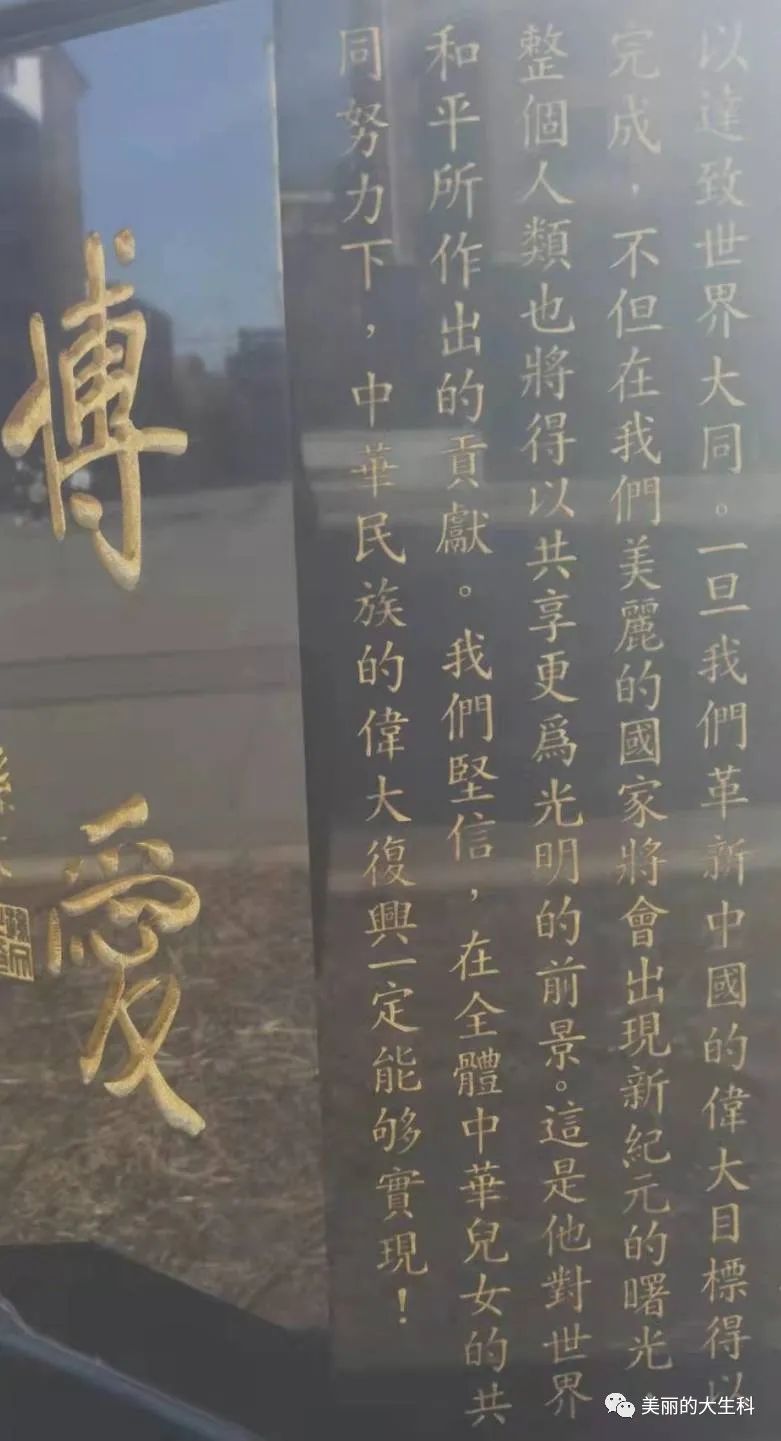 以達致世界大同。一旦我們革新中國的偉大目標得以
完成，不但在我們美麗的國家將會出現新紀元的曙光，
整個人類也將得以共享更爲光明的前景。這是他對世界
和平所作出的貢獻。我們堅信，在全體中華兒女的共
同努力下，中華民族的偉大復興一定能够實現！
博愛
美丽的大生科